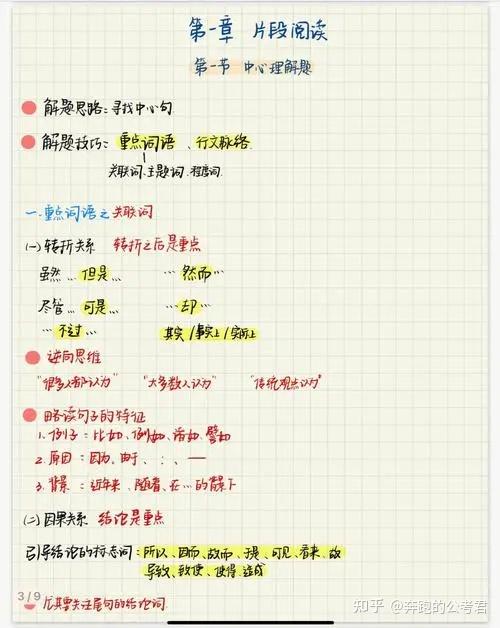 第一章 片段阅读
第一节 中心理解题
解题思路：寻找中心句
解题技巧：重点词语、行文脉络
关联词.主题词.程度词
一.重点词语之关联词
(一)转折关系 转折之后是重点
虽然…但是… …然而…
尽管…可是… …却…
…不过… 其实/事实上/实际上
逆向思维
"很多人都认为" "大多数人认为" "传统观点认为"
略读句子的特征
1.例子：比如、例如、诸如、譬如
2.原因：因为、由于、：、——
3.背景：近年来、随着、在…的背景下
(二)因果关系 结论是重点
引导结论的标志词：所以、因而、故而、于是、可见、看来、故
导致、致使、使得、造成
3/9
尤其要关注尾句的结论词.
知乎 @奔跑的公考君